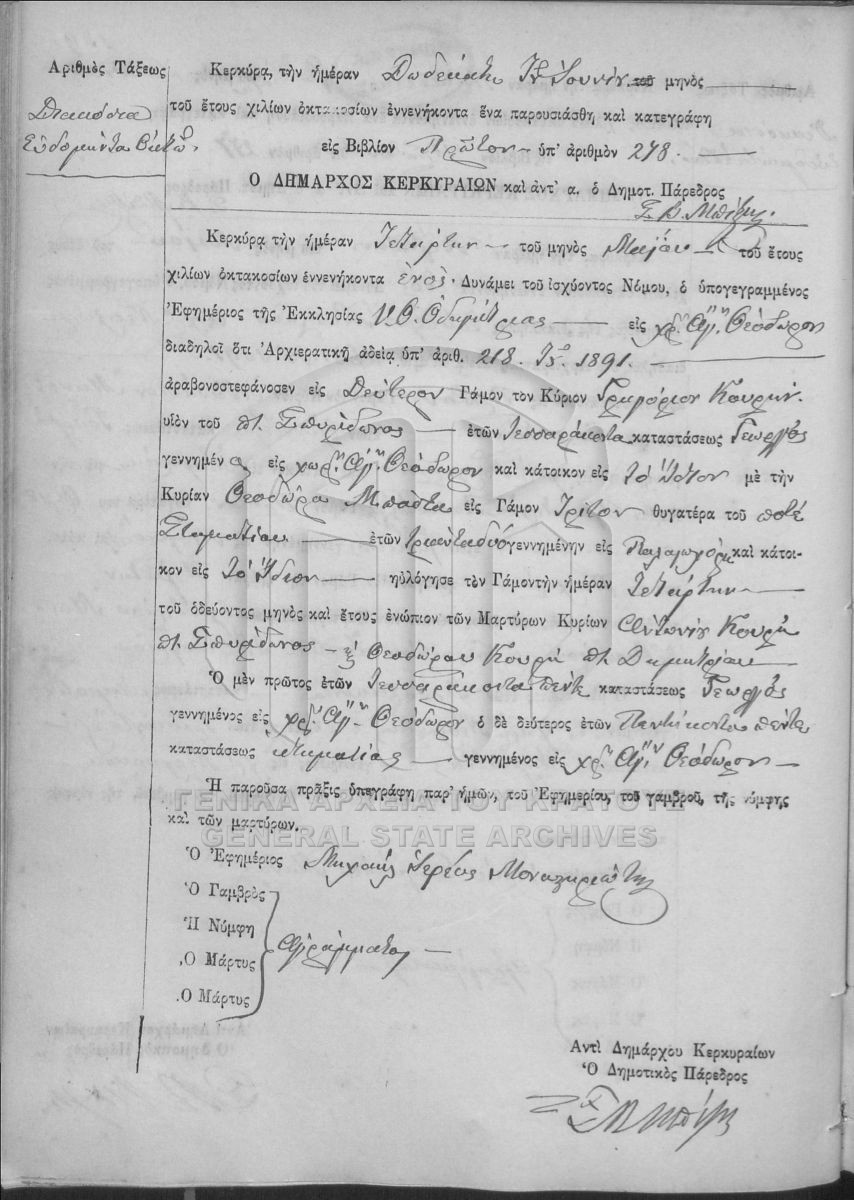 Ἀριθμὸς Τάξεως
Διακόσια
Ἑβδομήντα ὀκτώ
Κερκύρᾳ, τὴν ἡμέραν Δωδεκάτη Ἰουνίου τοῦ μηνὸς
τοῦ ἔτους χιλίων ὀκτακοσίων ἐννενήκοντα ἕνα παρουσιάσθη καὶ κατεγράφη
εἰς Βιβλίον Πρῶτον ὑπ' ἀριθμὸν 278.
Ο ΔΗΜΑΡΧΟΣ ΚΕΡΚΥΡΑΙΩΝ καὶ ἀντ' α. ὁ Δημοτ. Πάρεδρος
Κερκύρᾳ τὴν ἡμέραν Τετάρτην τοῦ μηνὸς Μαΐου τοῦ ἔτους
χιλίων ὀκτακοσίων ἐννενήκοντα ἑνός. Δυνάμει τοῦ ἰσχύοντος Νόμου, ὁ ὑπογεγραμμένος
Ἐφημέριος τῆς Ἐκκλησίας Υ.Θ. Ὁδηγήτριας εἰς χρ. Ἁγ. Θεόδωρον
διαδηλοῖ ὅτι Ἀρχιερατικῇ ἀδείᾳ ὑπ' ἀριθ. 218 1891.
ἀραβονοστεφάνοσεν εἰς Δεύτερον Γάμον τὸν Κύριον Γρηγόριον Κουρήν
υἱὸν τοῦ πτ Σπυρίδωνος ἐτῶν τεσσαράκοντα καταστάσεως Γεωργός
γεννημέν ο εἰς χωρ. Ἁγ. Θεόδωρον καὶ κάτοικον εἰς τὸ ἴδιον μὲ τὴν
Κυρίαν Θεοδώρα Μπάστα εἰς Γάμον Τρίτον θυγατέρα τοῦ ποτέ
Σταματίου ἐτῶν τριανταδύο γεννημένην εἰς καὶ κάτοι-
κον εἰς τὸ ἴδιον ηὐλόγησε τὸν Γάμον τὴν ἡμέραν Τετάρτην
τοῦ ὁδεύοντος μηνὸς καὶ ἔτους ἐνώπιον τῶν Μαρτύρων Κυρίων Ἀντωνίου Κουρῆ
πτ Σπυρίδωνος ἢ Θεοδώρου Κουρῆ πτ Δημητρίου
Ὁ μὲν πρῶτος ἐτῶν τεσσαράκοντα πέντε καταστάσεως Γεωργός
γεννημένος εἰς χρ. Ἁγ. Θεόδωρον ὁ δὲ δεύτερος ἐτῶν Πεντήκοντα πέντε
καταστάσεως κτηματίας γεννημένος εἰς χρ. Ἁγ. Θεόδωρον
Ἡ παροῦσα πρᾶξις ὑπεγράφη παρ' ἡμῶν, τοῦ Ἐφημερίου, τοῦ γαμβροῦ, τῆς νύμφης
καὶ τῶν μαρτύρων.
ΓΕΝΙΚΑ ΑΡΧΕΙΑ ΤΟΥ ΚΡΑΤΟΥΣ
GENERAL STATE ARCHIVES
Ὁ Ἐφημέριος Μιχαήλ Ἱερεύς
Ὁ Γαμβρὸς
Ἡ Νύμφη
Ἀγράμματοι
Ὁ Μάρτυς
Ὁ Μάρτυς
Ἀντὶ Δημάρχου Κερκυραίων
Ὁ Δημοτικὸς Πάρεδρος